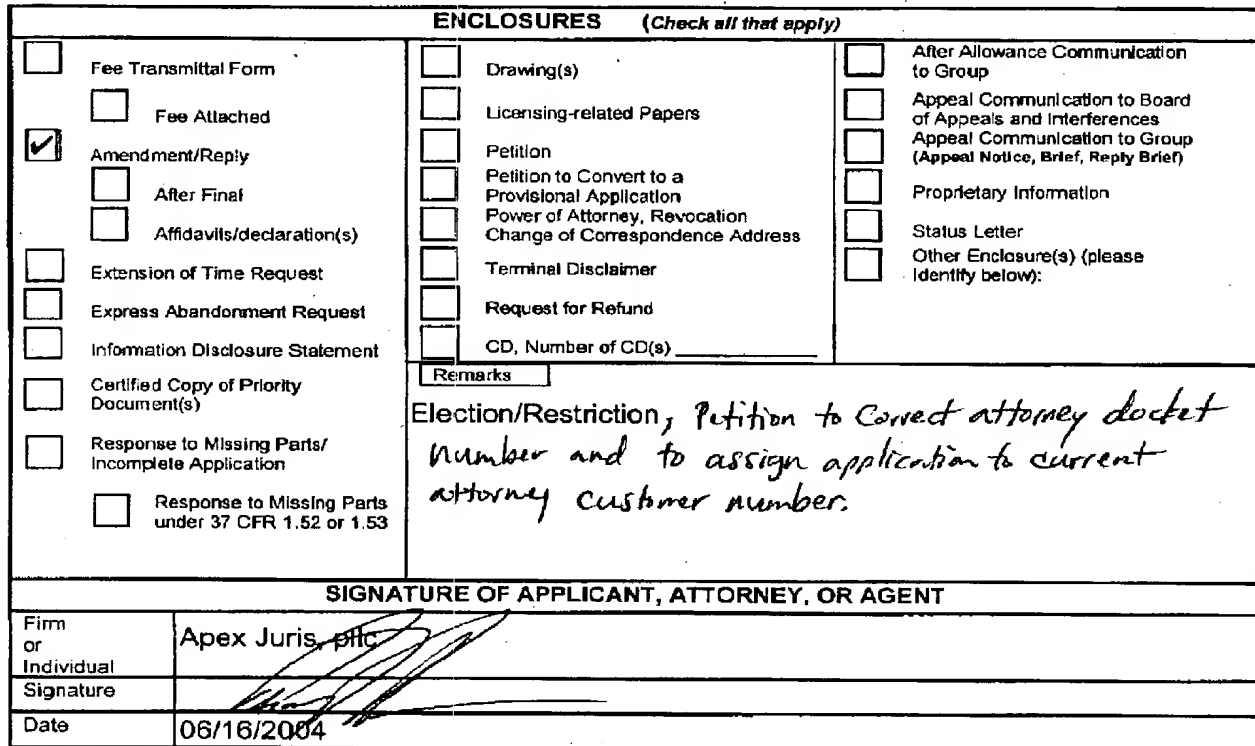 ENCLOSURES (Check all that apply)
Fee Transmittal Form
Fee Attached
Amendment/Reply
After Final
Affidavits/declaration(s)
Extension of Time Request
Express Abandonment Request
Information Disclosure Statement
Certified Copy of Priority
Document(s)
Response to Missing Parts/
Incomplete Application
Response to Missing Parts
under 37 CFR 1.52 or 1.53
Drawing(s)
Licensing-related Papers
Petition
Petition to Convert to a
Provisional Application
Power of Attorney, Revocation
Change of Correspondence Address
Terminal Disclaimer
Request for Refund
CD, Number of CD(s)
After Allowance Communication
to Group
Appeal Communication to Board
of Appeals and Interferences
Appeal Communication to Group
(Appeal Notice, Brief, Reply Brief)
Proprietary Information
Status Letter
Other Enclosure(s) (please
Identify below):
Remarks
Election/Restriction, Petition to Correct attorney docket
number and to assign application to current
attorney customer number.
SIGNATURE OF APPLICANT, ATTORNEY, OR AGENT
Firm
or
Individual
Apex Juris, pllc
Signature
Date
06/16/2004